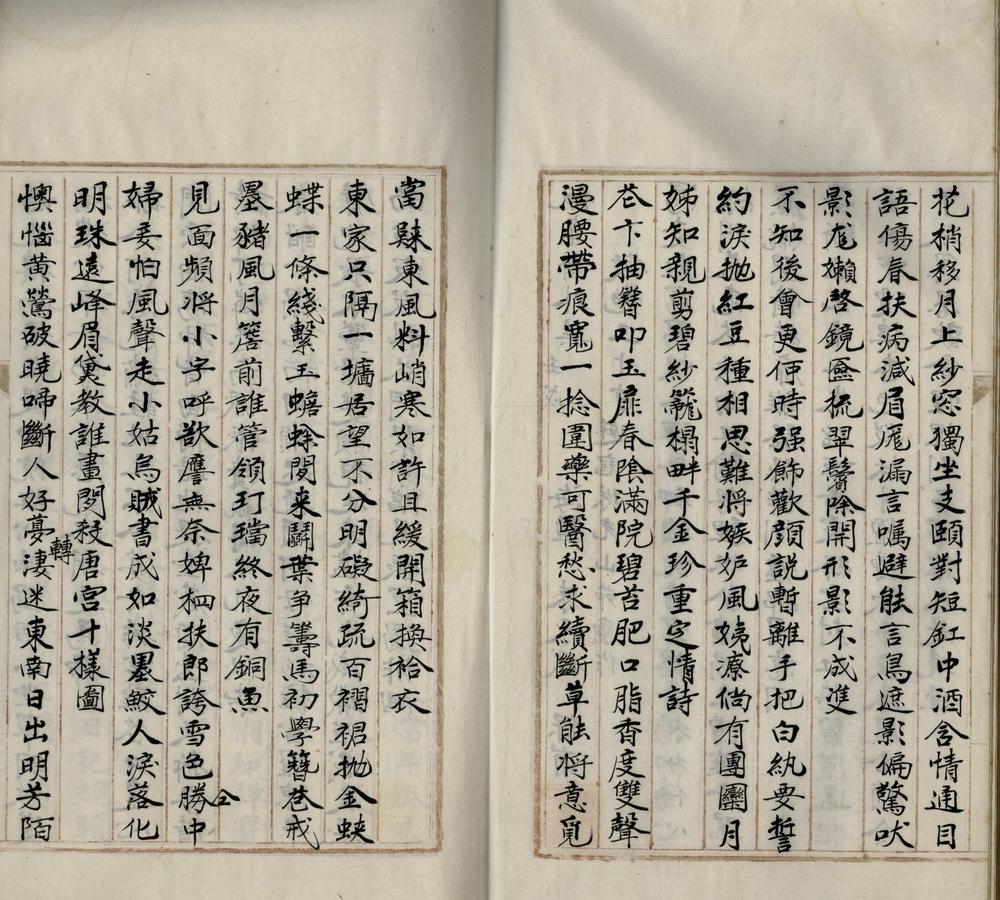 花梢移月上紗窓獨坐支頤對短釭中酒含情通目
語傷春扶病減眉厖漏言囑避能言鳥遮影偏驚吠
影尨嬾啓鏡匳梳翠鬢除開形影不成雙
不知後會更何時强飾歡顔説暫離手把白紈要誓
約淚拋紅豆種相思難將嫉妒風姨療倘有團圞月
姊知親剪碧紗籠榻畔千金珍重定情詩
苍卞抽簪叩玉扉春陰滿院碧苔肥口脂香度雙聲
漫腰帶痕寬一捻圍藥可醫愁求續斷草能將意覓
當歸東風料峭寒如許且緩開箱換袷衣
東家只隔一墻居望不分明礙綺疏百褶裙拋金蛺
蝶一條綫繫玉蟾蜍閒来鬭葉争籌馬初學簪苍戒
墨豬風月簷前誰管領玎璫終夜有銅魚
見面頻将小字呼欲譍無奈婢相扶郎誇雪色勝中
仝
婦妾怕風聲走小姑烏賊書成如淡墨鮫人淚落化
明珠遠峰眉黛教誰畫閱殺唐宫十樣圖
懊惱黄鶯破曉啼斷人好夢淒迷東南日出明芳陌
轉